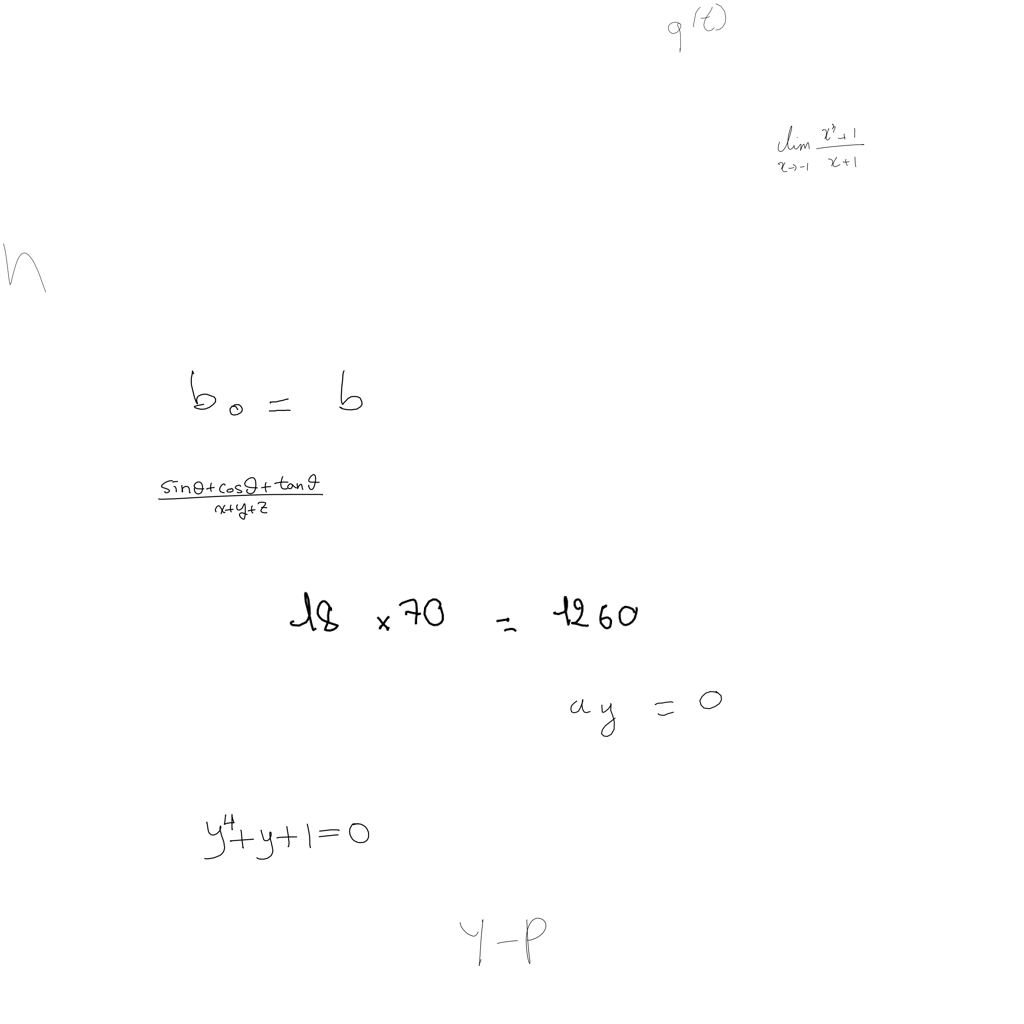 q(t)
lim x→-1 (x³+1)/(x+1)
n
b₀ = b
(sinθ+cosθ+tanθ)/(x+y+z)
18 × 70 = 1260
ay = 0
y⁴+y+1=0
Y-P